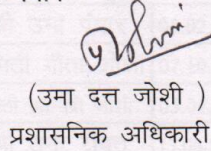 (उमा दत्त जोशी )
प्रशासनिक अधिकारी